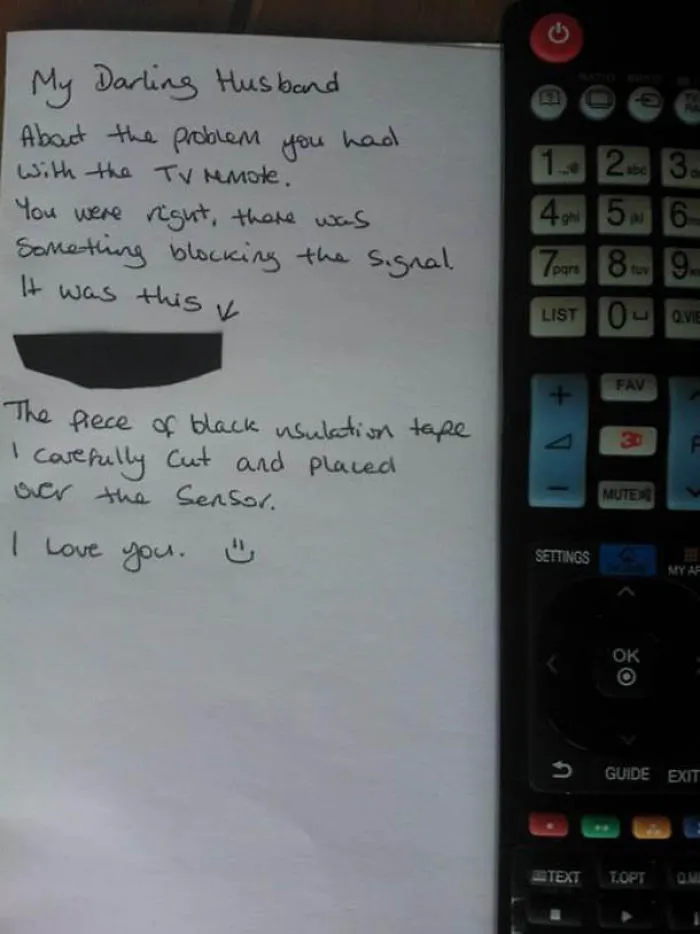 My Darling Husband
About the problem you had
with the TV remote.
You were right, there was
Something blocking the signal.
It was this
The piece of black insulation tape
I carefully cut and placed
over the Sensor.
I Love you.
RATIO
1.,,@ 2abc 3
4ghi 5jkl 6
7pqrs 8tuv 9
LIST 0 Q.VIE
+ FAV
3D
- MUTE
SETTINGS MY AP
OK
GUIDE EXIT
TEXT T.OPT Q.M